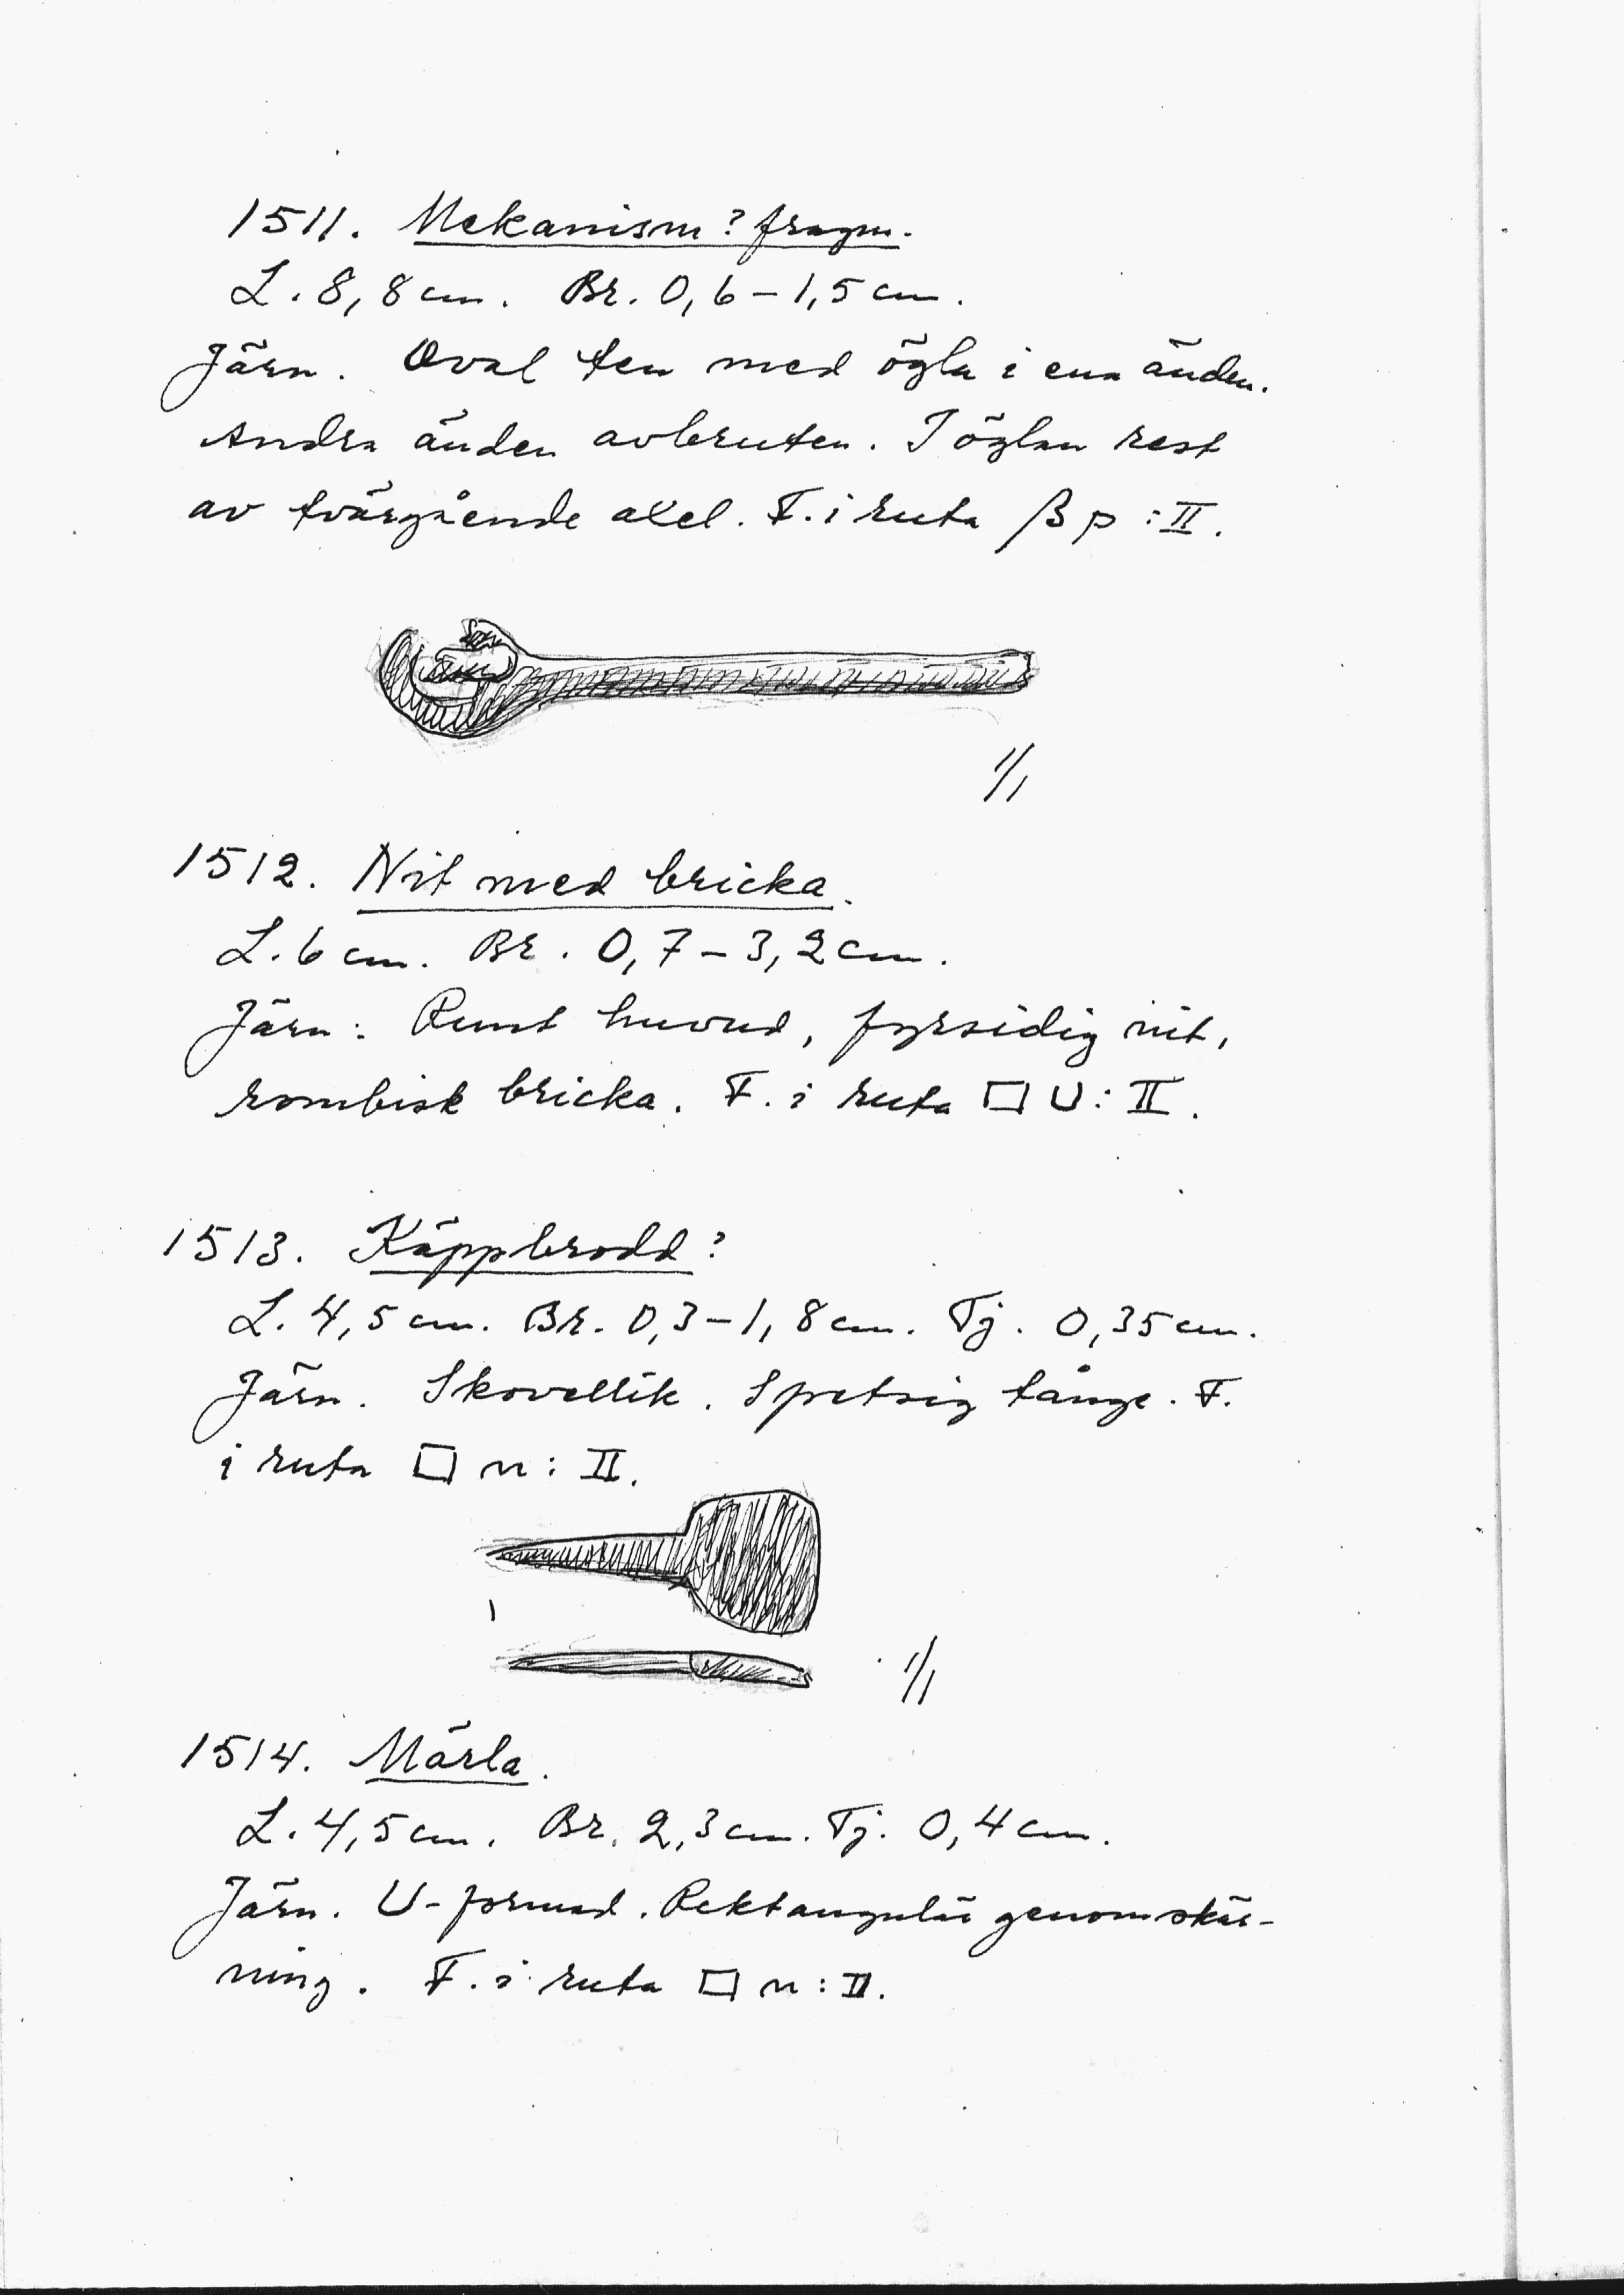 1511. Mekanism? fragm.
L. 8,8 cm. Br. 0,6 – 1,5 cm.
Järn. Oval ten med ögla i ena änden.
Andra änden avbruten. I öglan rest
av tvärgående axel. F. i ruta β p : II.
1/1
1512. Nit med bricka.
L. 6 cm. Br. 0,7 – 3,2 cm.
Järn. Runt huvud, fyrsidig nit,
rombisk bricka. F. i ruta □ U : II.
1513. Käppbrodd?
L. 4,5 cm. Br. 0,3 – 1,8 cm. Tj. 0,35 cm.
Järn. Skovellik. Spetsig tånge. F.
i ruta □ n : II.
1/1
1514. Märla.
L. 4,5 cm. Br. 2,3 cm. Tj. 0,4 cm.
Järn. U-formad. Rektangulär genomskär-
ning. F. i ruta □ n : II.